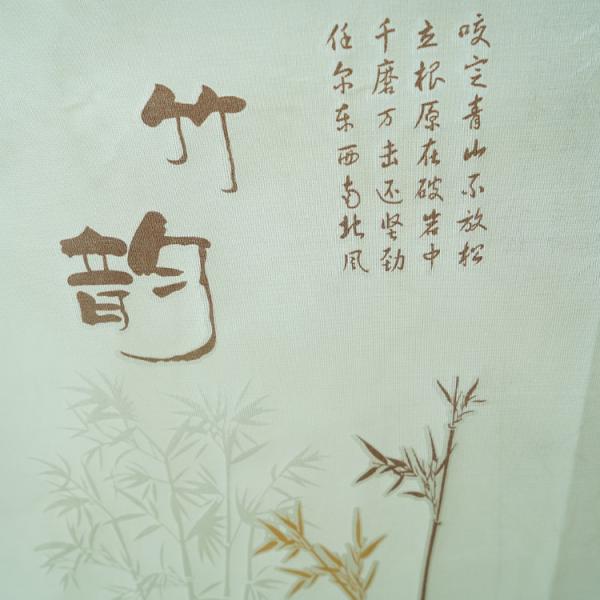 咬定青山不放松
立根原在破岩中
千磨万击还坚劲
任尔东西南北风
竹韵